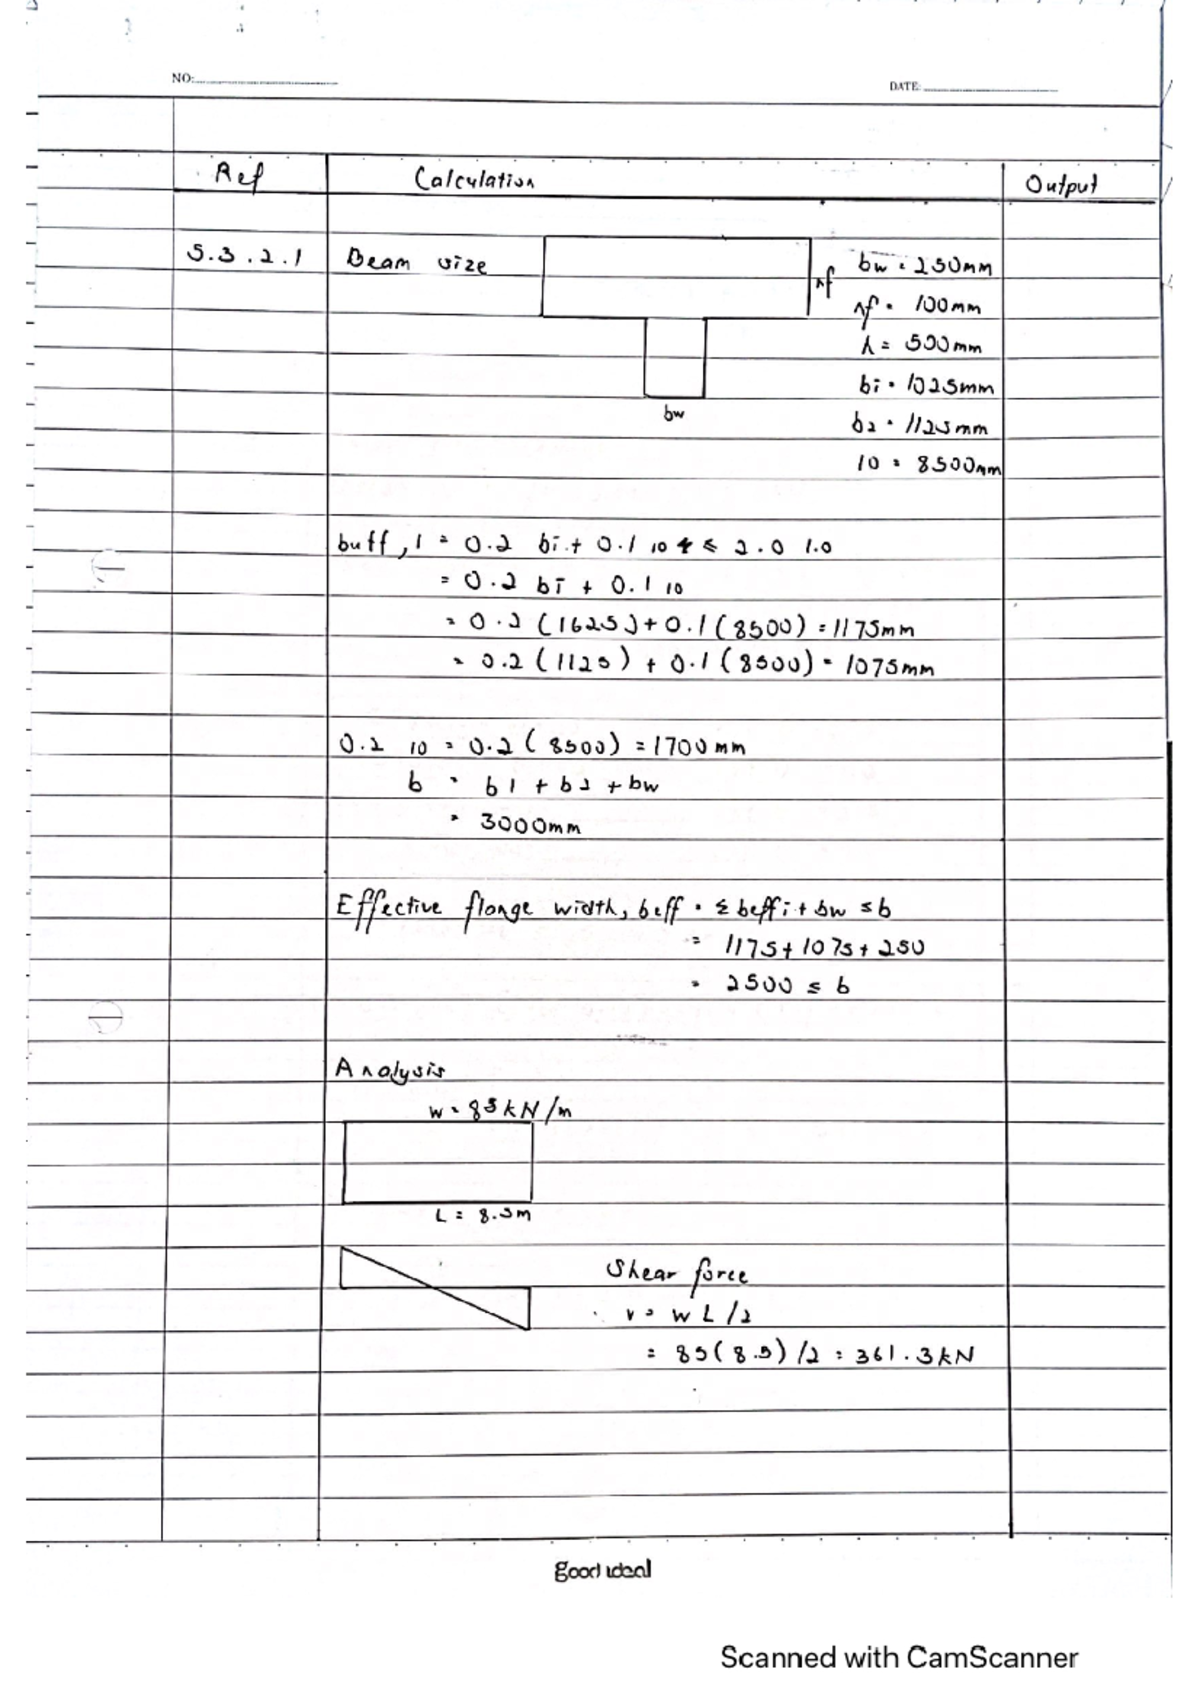 NO:
DATE:
Ref Calculation Output
5.3.2.1 Beam size
hf
bw
bw = 250mm
hf = 100mm
h = 500mm
bi = 1625mm
b2 = 1125mm
lo = 8500mm
beff, 1 = 0.2 bi + 0.1 lo ≤ 2.0 1.0
= 0.2 bi + 0.1 lo
= 0.2 (1625) + 0.1 (8500) = 1175mm
= 0.2 (1125) + 0.1 (8500) = 1075mm
0.2 lo = 0.2 (8500) = 1700 mm
b = b1 + b2 + bw
= 3000mm
Effective flange width, beff = Σ beffi + bw ≤ b
= 1175 + 1075 + 250
= 2500 ≤ b
Analysis
w = 85 kN/m
L = 8.5m
Shear force
v = wL/2
= 85(8.5)/2 = 361.3kN
good ideal
Scanned with CamScanner